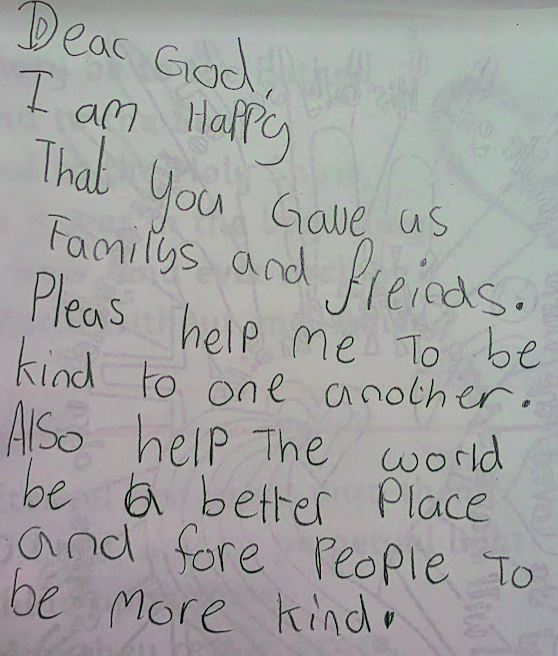 Dear God,
I am Happy
That you Gave us
Familys and freinds.
Pleas help me To be
kind to one another.
Also help The world
be a better Place
and fore People To
be more kind.